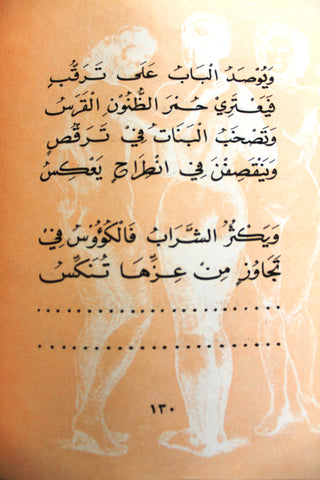 وَيُوْصَدُ الْبَابُ عَلَى تَرَقُّبٍ
فَيَعْتَرِي حُمْرَ الظُّنُوْنِ الْقَرَسُ
وَتَصْخَبُ الْبَنَاتُ فِيْ تَرَقُّصٍ
وَيَنْقَصِفْنَ فِي انْطِرَاحٍ يَعْكِسُ
وَيَكْثُرُ الشَّرَابُ فَالْكُؤُوْسُ فِيْ
تَجَاوُزٍ مِنْ عِزِّهَا تُنَكَّسُ
..............................
..............................
١٣٠